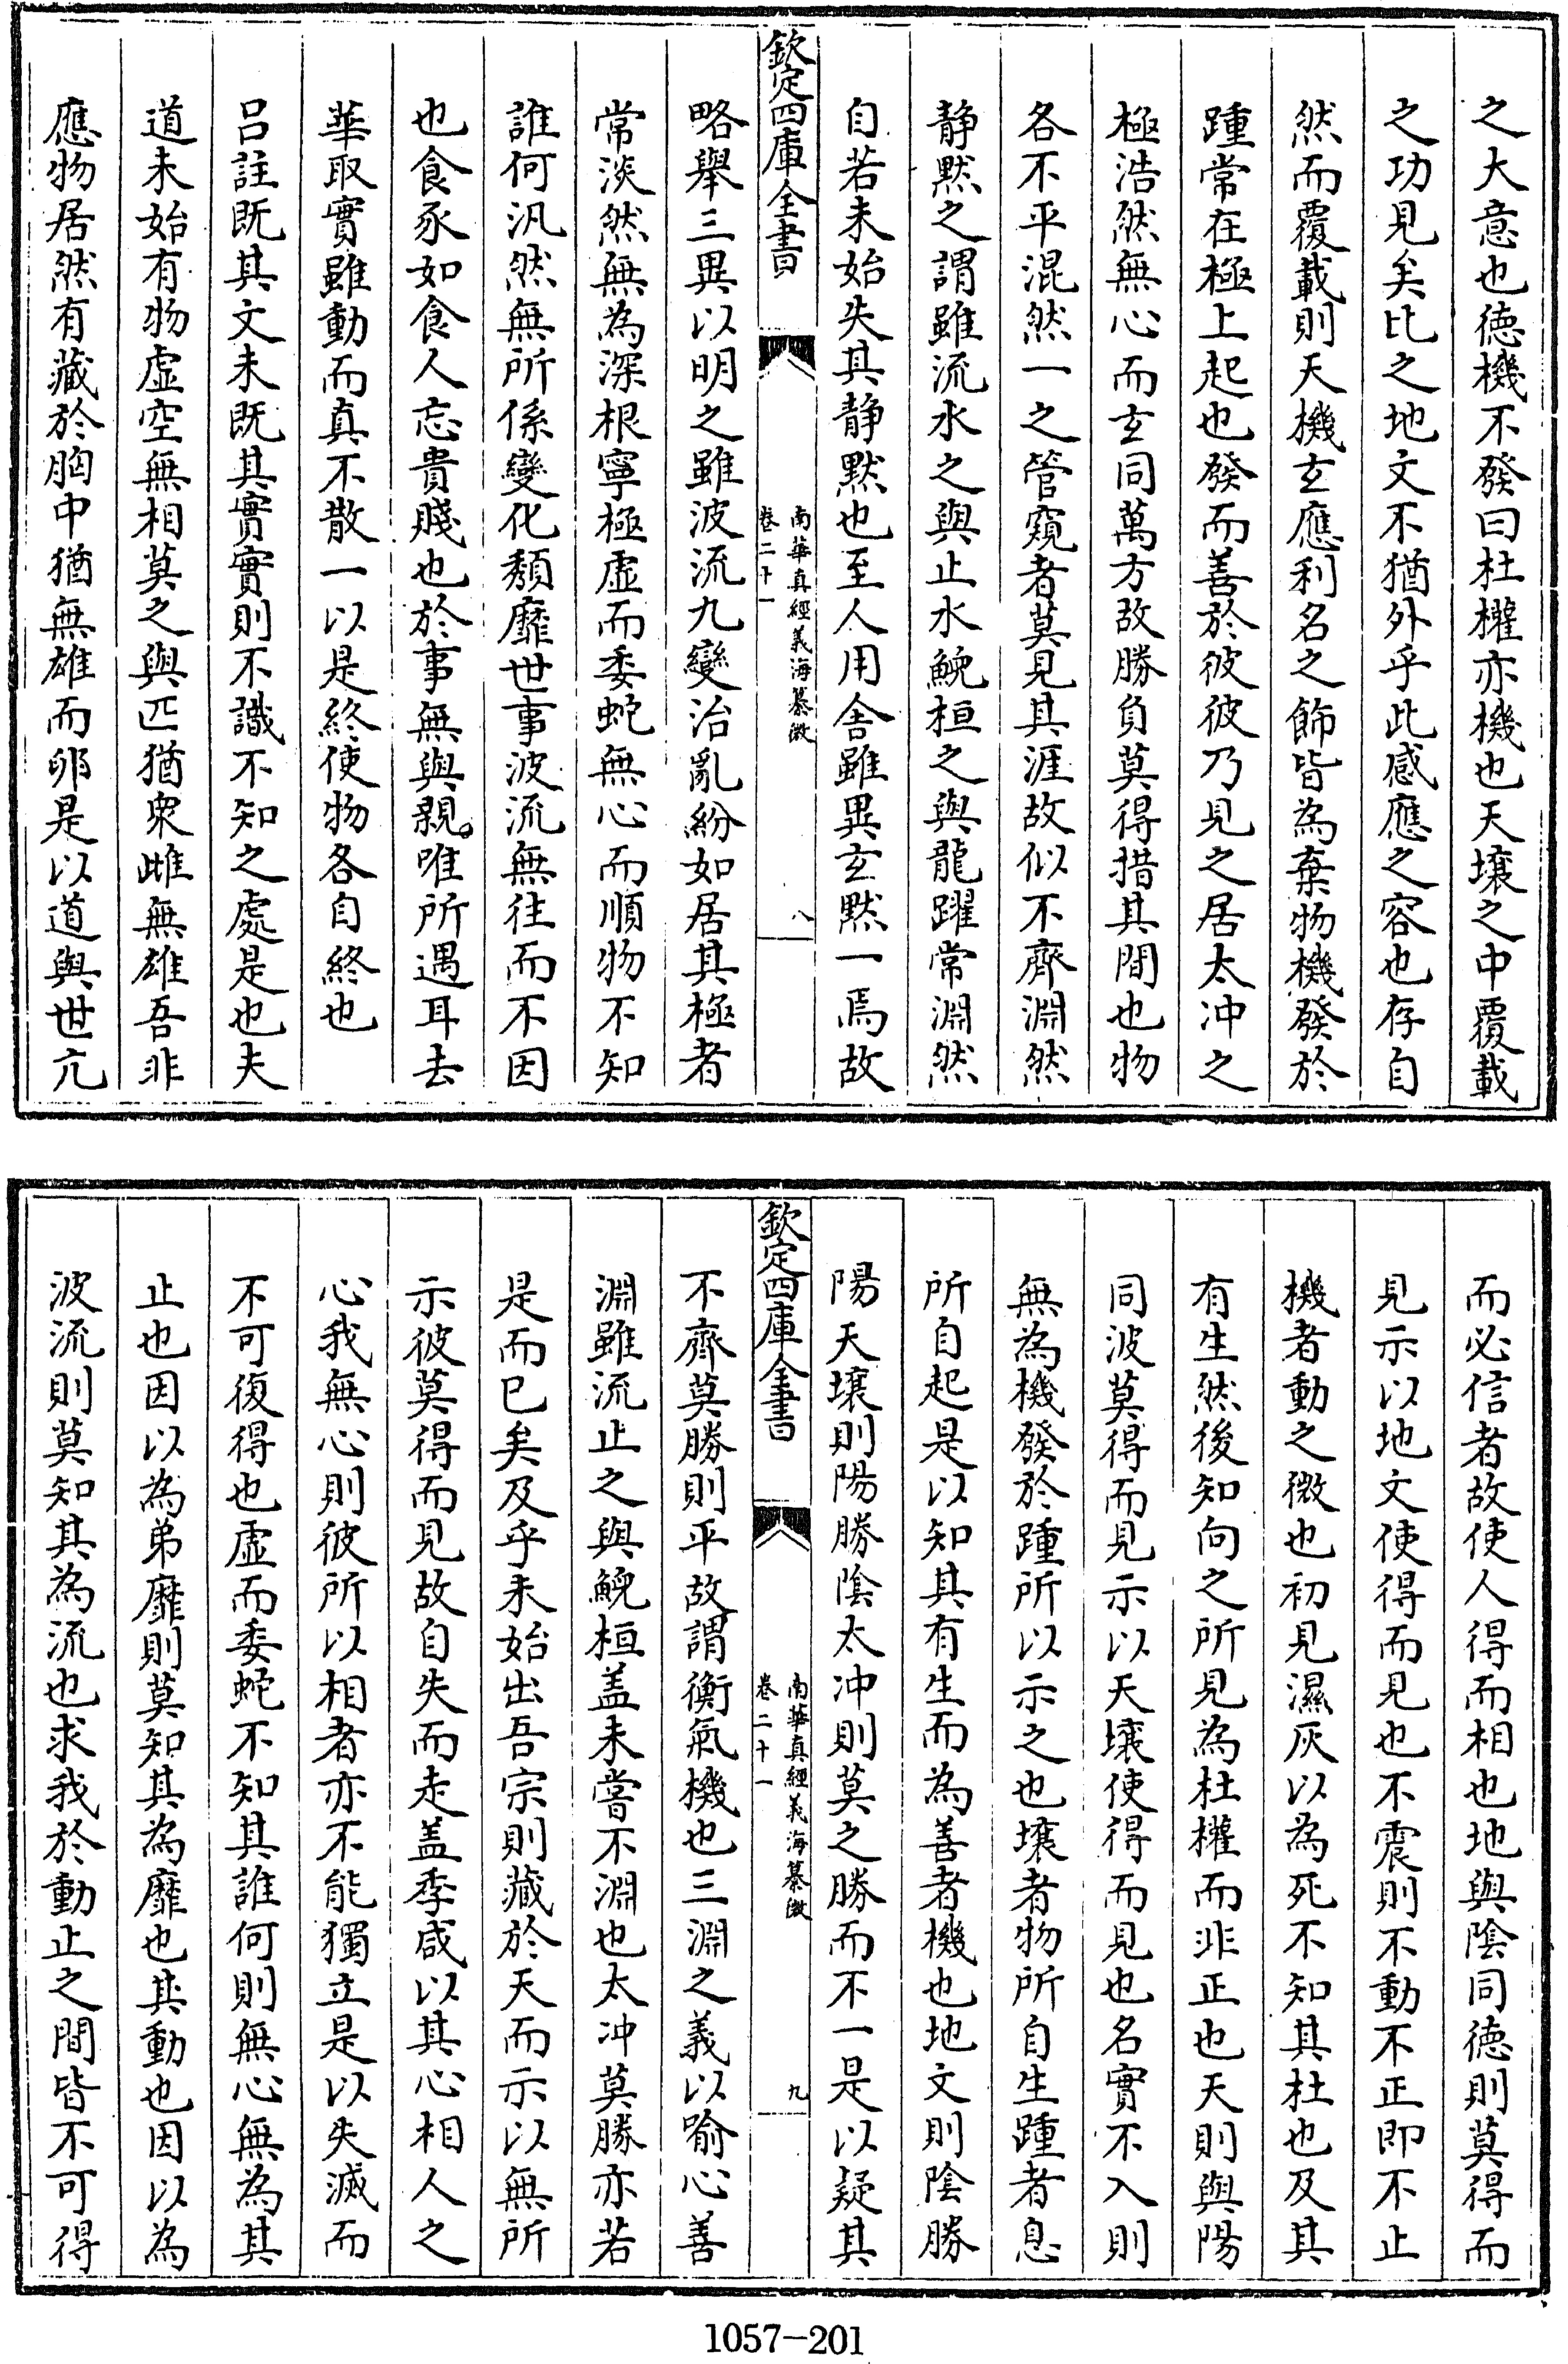 之大意也德機不發曰杜權亦機也天壤之中覆載
之功見矣比之地文不猶外乎此感應之容也存自
然而覆載則天機玄應利名之飾皆為棄物機發於
踵常在極上起也發而善於彼彼乃見之居太冲之
極浩然無心而玄同萬方故勝負莫得措其間也物
各不平混然一之管窺者莫見其涯故似不齊淵然
静黙之謂雖流水之與止水鯢桓之與龍躍常淵然
自若未始失其静黙也至人用舍雖異玄黙一焉故
欽定四庫全書
南華真經義海纂微
卷二十一
八
略舉三異以明之雖波流九變治亂紛如居其極者
常淡然無為深根寧極虛而委蛇無心而順物不知
誰何汎然無所係變化頹靡世事波流無往而不因
也食豕如食人忘貴賤也於事無與親唯所遇耳去
華取實雖動而真不散一以是終使物各自終也
呂註既其文未既其實實則不識不知之處是也夫
道未始有物虛空無相莫之與匹猶衆雌無雄吾非
應物居然有藏於胸中猶無雄而卵是以道與世亢
而必信者故使人得而相也地與陰同德則莫得而
見示以地文使得而見也不震則不動不正即不止
機者動之微也初見濕灰以為死不知其杜也及其
有生然後知向之所見為杜權而非正也天則與陽
同波莫得而見示以天壤使得而見也名實不入則
無為機發於踵所以示之也壤者物所自生踵者息
所自起是以知其有生而為善者機也地文則陰勝
陽天壤則陽勝陰太冲則莫之勝而不一是以疑其
欽定四庫全書
南華真經義海纂微
卷二十一
九
不齊莫勝則平故謂衡氣機也三淵之義以喻心善
淵雖流止之與鯢桓盖未嘗不淵也太冲莫勝亦若
是而已矣及乎未始出吾宗則藏於天而示以無所
示彼莫得而見故自失而走盖季咸以其心相人之
心我無心則彼所以相者亦不能獨立是以失滅而
不可復得也虛而委蛇不知其誰何則無心無為其
止也因以為弟靡則莫知其為靡也其動也因以為
波流則莫知其為流也求我於動止之間皆不可得
1057-201